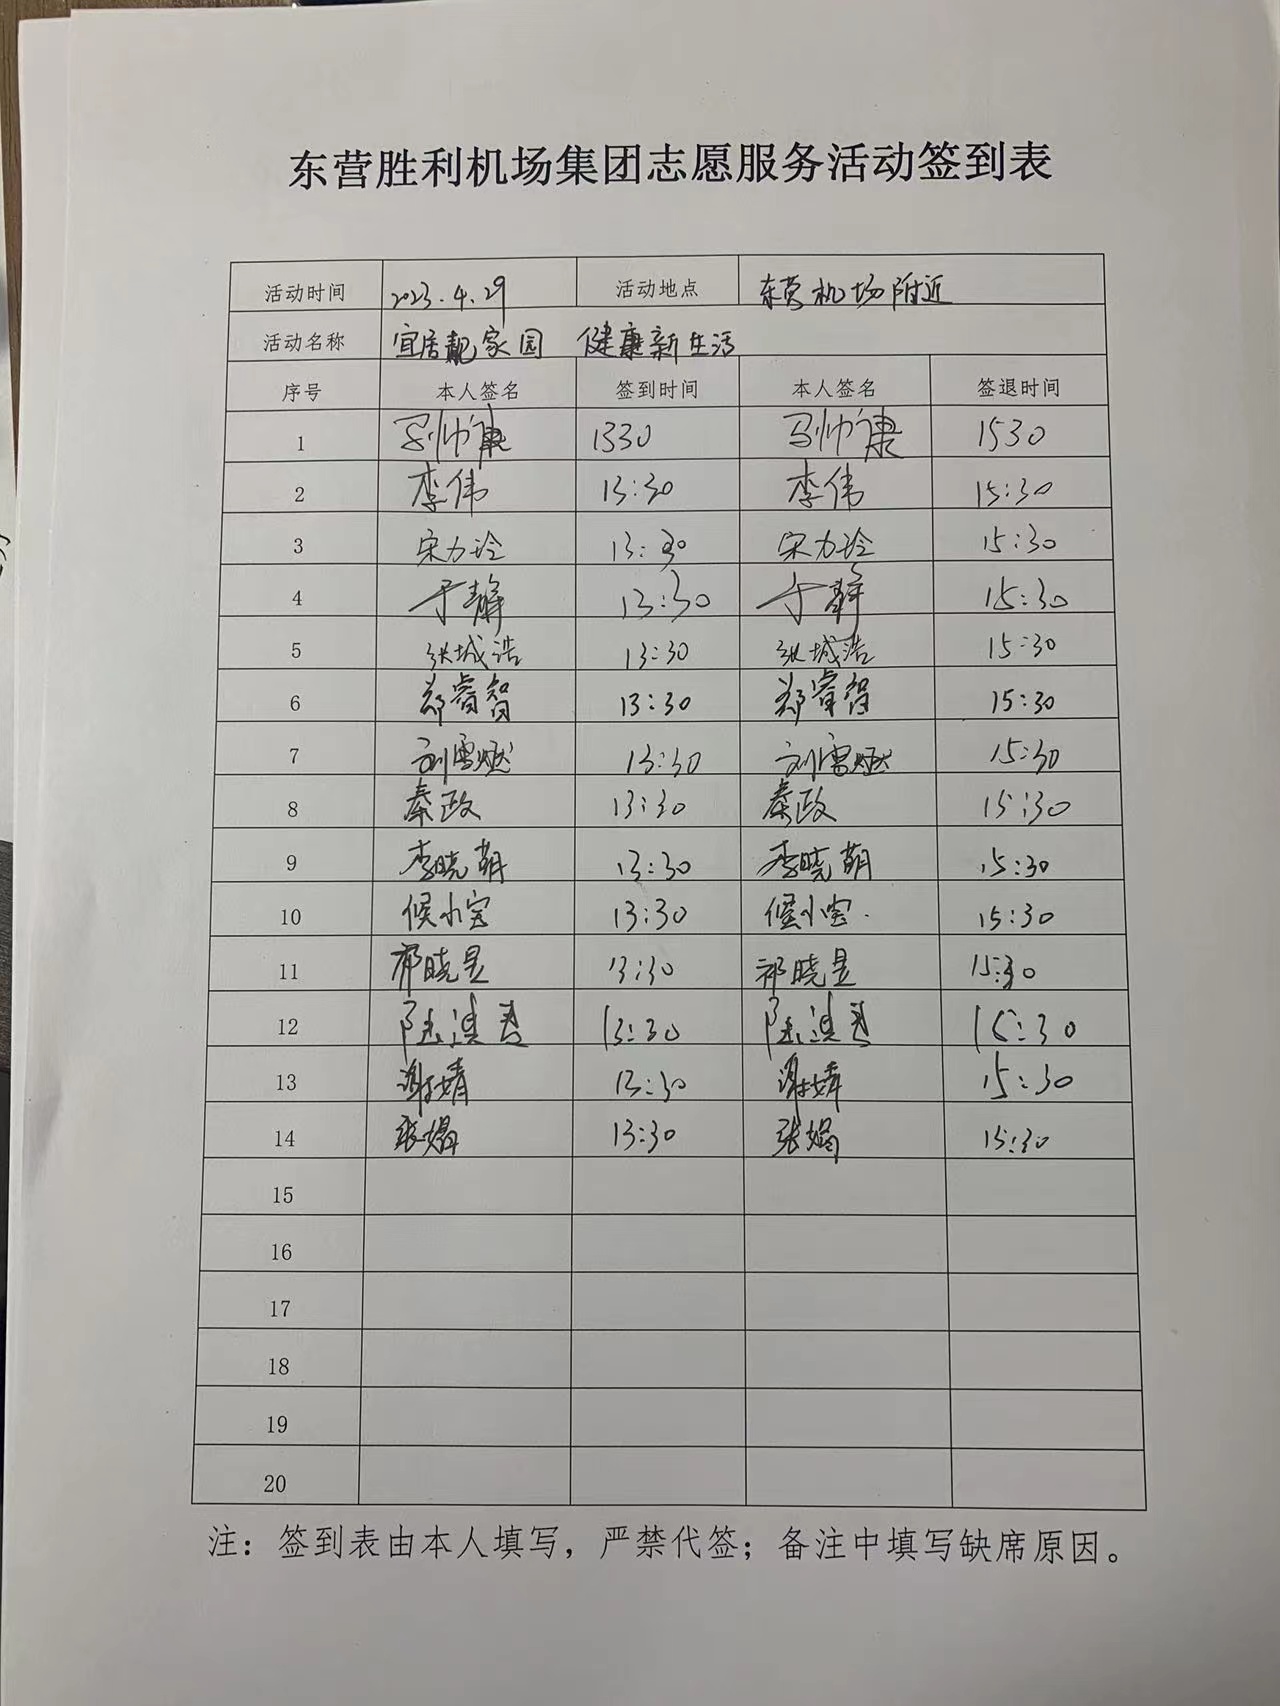 东营胜利机场集团志愿服务活动签到表
活动时间 2023.4.29 活动地点 东营机场附近
活动名称 宜居靓家园 健康新生活
序号 本人签名 签到时间 本人签名 签退时间
1 马帅康 1330 马帅康 1530
2 李伟 13:30 李伟 15:30
3 宋力玲 13:30 宋力玲 15:30
4 于静 13:30 于静 15:30
5 张城浩 13:30 张城浩 15:30
6 郑睿智 13:30 郑睿智 15:30
7 刘雪燃 13:30 刘雪燃 15:30
8 秦政 13:30 秦政 15:30
9 李晓萌 13:30 李晓萌 15:30
10 候小宝 13:30 候小宝 15:30
11 祁晓昱 13:30 祁晓昱 15:30
12 13:30 15:30
13 谢婧 13:30 谢婧 15:30
14 张娟 13:30 张娟 15:30
15
16
17
18
19
20
注：签到表由本人填写，严禁代签；备注中填写缺席原因。